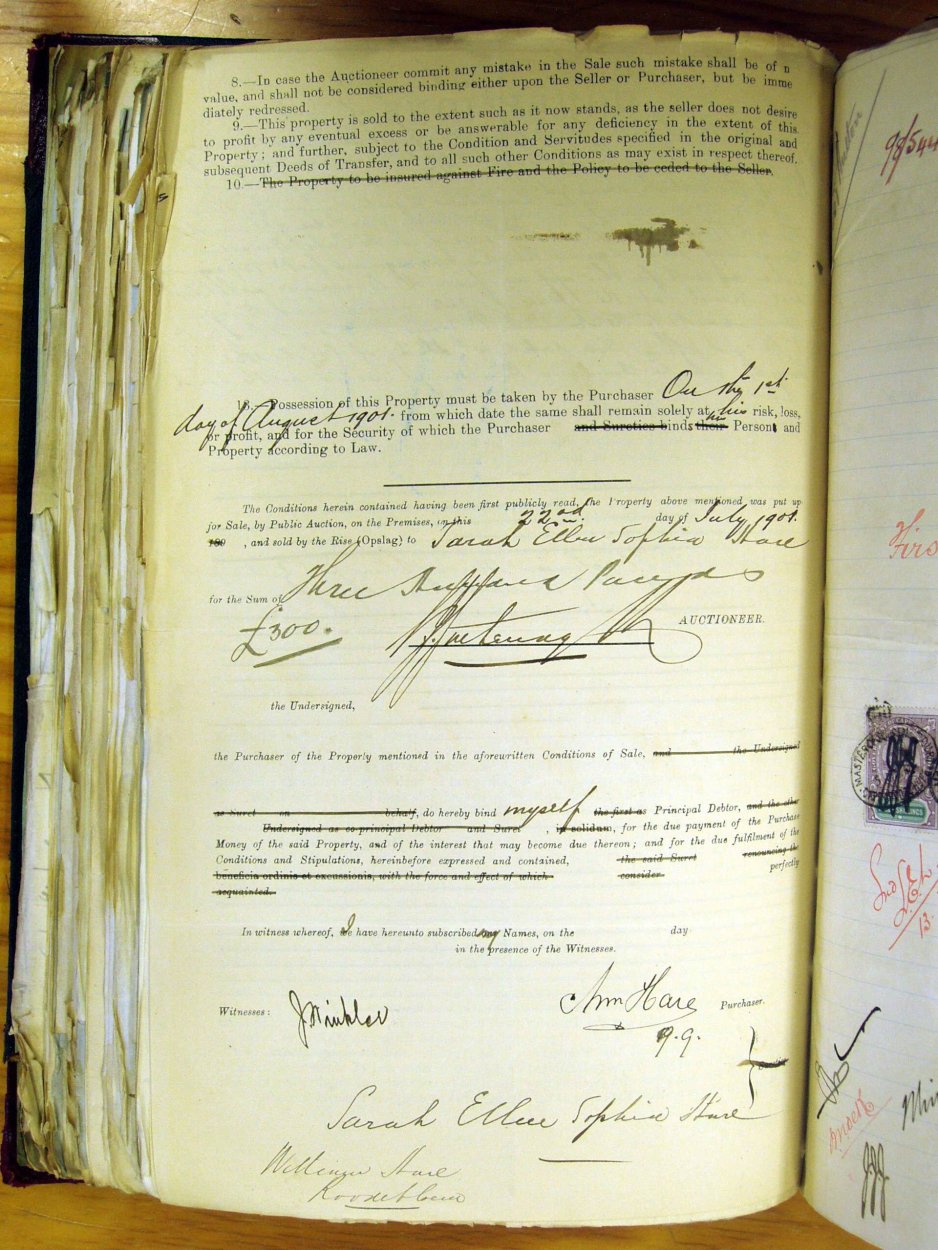 8.—In case the Auctioneer commit any mistake in the Sale such mistake shall be of n
value, and shall not be considered binding either upon the Seller or Purchaser, but be imme
diately redressed.
9.—This property is sold to the extent such as it now stands, as the seller does not desire
to profit by any eventual excess or be answerable for any deficiency in the extent of this
Property; and further, subject to the Condition and Servitudes specified in the original and
subsequent Deeds of Transfer, and to all such other Conditions as may exist in respect thereof.
10.—The Property to be insured against Fire and the Policy to be ceded to the Seller.
13.—Possession of this Property must be taken by the Purchaser On the 1st
day of August 1901. from which date the same shall remain solely at his risk, loss,
or profit, and for the Security of which the Purchaser and Sureties binds their his Person, and
Property according to Law.
The Conditions herein contained having been first publicly read, the Property above mentioned was put up
for Sale, by Public Auction, on the Premises, on this 22nd. day of July 1901.
189 , and sold by the Rise (Opslag) to Sarah Ellen Sophia Hare
for the Sum of Three Hundred Pounds
£300. AUCTIONEER.
the Undersigned,
the Purchaser of the Property mentioned in the aforewritten Conditions of Sale, and the Undersigned
as Suret on behalf, do hereby bind myself the first as Principal Debtor, and the other
Undersigned as co-principal Debtor and Suret , in solidum, for the due payment of the Purchase
Money of the said Property, and of the interest that may become due thereon; and for the due fulfilment of the
Conditions and Stipulations, hereinbefore expressed and contained, the said Suret renouncing the
beneficia ordinis et excussionis, with the force and effect of which consider perfectly
acquainted.
In witness whereof, I have hereunto subscribed my Names, on the day
in the presence of the Witnesses.
Witnesses: J Winkler Wm Hare Purchaser.
q.q.
Sarah Ellen Sophia Hare
William Hare
Roodebloem